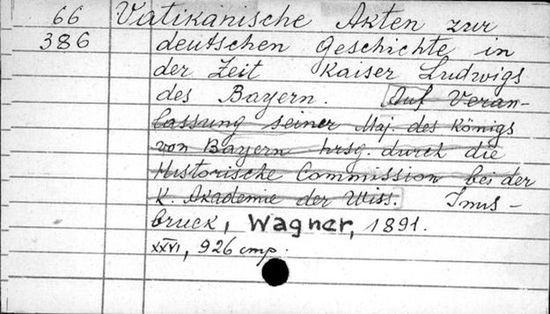 66 Vatikanische Akten zur
386 deutschen Geschichte in
der Zeit Kaiser Ludwigs
des Bayern. Auf Veran-
lassung seiner Maj. des Königs
von Bayern hrsg. durch die
Historische Commission bei der
K. Akademie der Wiss. Inns-
bruck, Wagner, 1891.
XXVI, 926 стр.